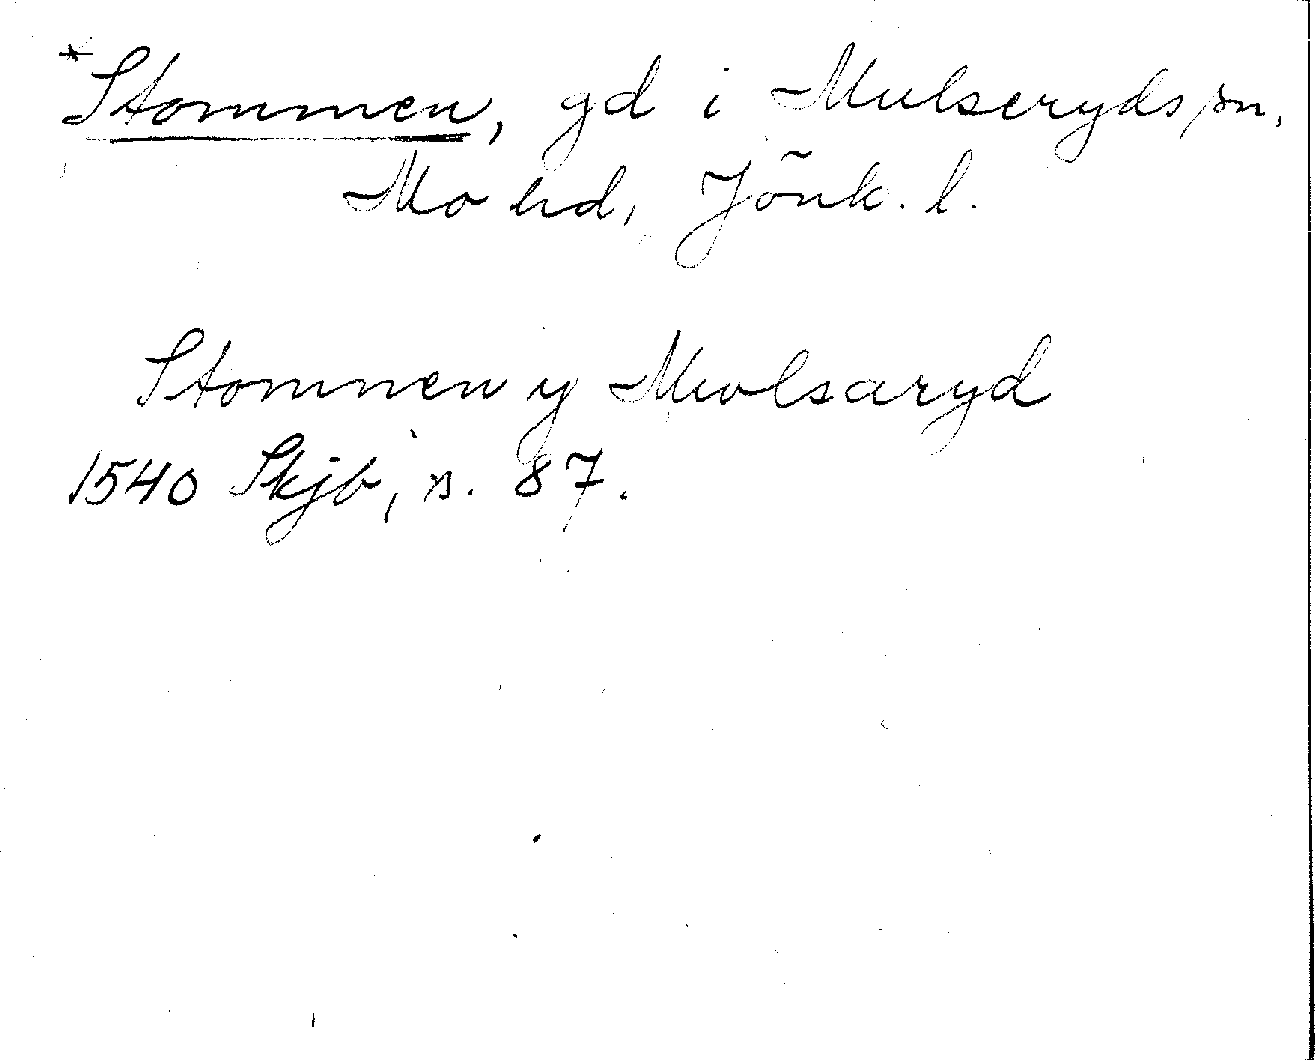 *Stommen, gd i Mulseryds sn,
Mo hd, Jönk. l.
Stommen y Mwlsaryd
1540 Skjb, s. 87.